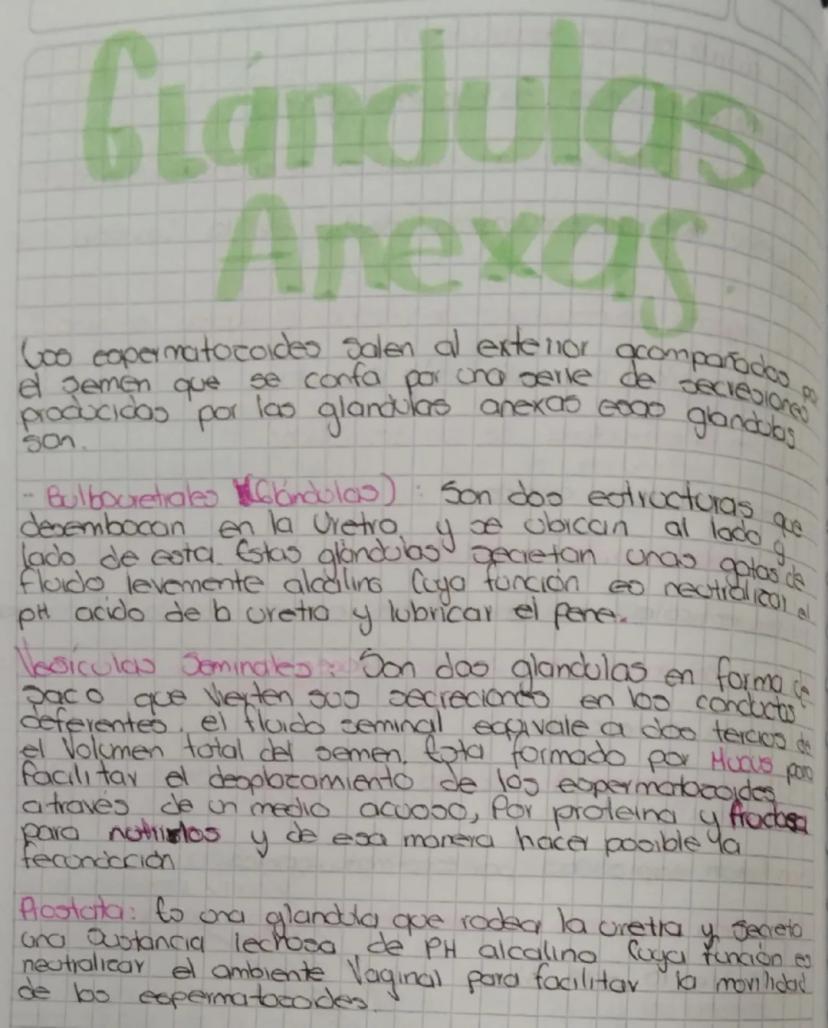 Glándulas
Anexas.
Los espermatocoides salen al exterior acompañados po
el semen que se confa por una serie de secresiones
producidas por las glandulas anexas esas glandulas
son.
- Bulbouretrales (Glándulas): Son dos estructuras que
desembocan en la Uretra y se ubican al lado y
lado de esta. Estas glándulas secretan unas gotas de
fluido levemente alcalino Cuya función es neutralicar el
pH acido de la uretra y lubricar el pene.
Vesiculas Seminales: Son dos glandulas en forma de
saco que vierten sus secreciones en los conductos
deferentes, el fluido seminal equivale a dos tercios de
el Volumen total del semen. Esta formado por Mucus para
facilitar el desplacamiento de los espermatocoides
a través de un medio acuoso, Por proteina y fructosa
para nutrirlos y de esa manera hacer posible la
fecundación
Prostata: Es una glandula que rodea la uretra y secreta
una sustancia lechosa de PH alcalino Cuya función es
neutralicar el ambiente Vaginal para facilitar la movilidad
de los espermatocoides.